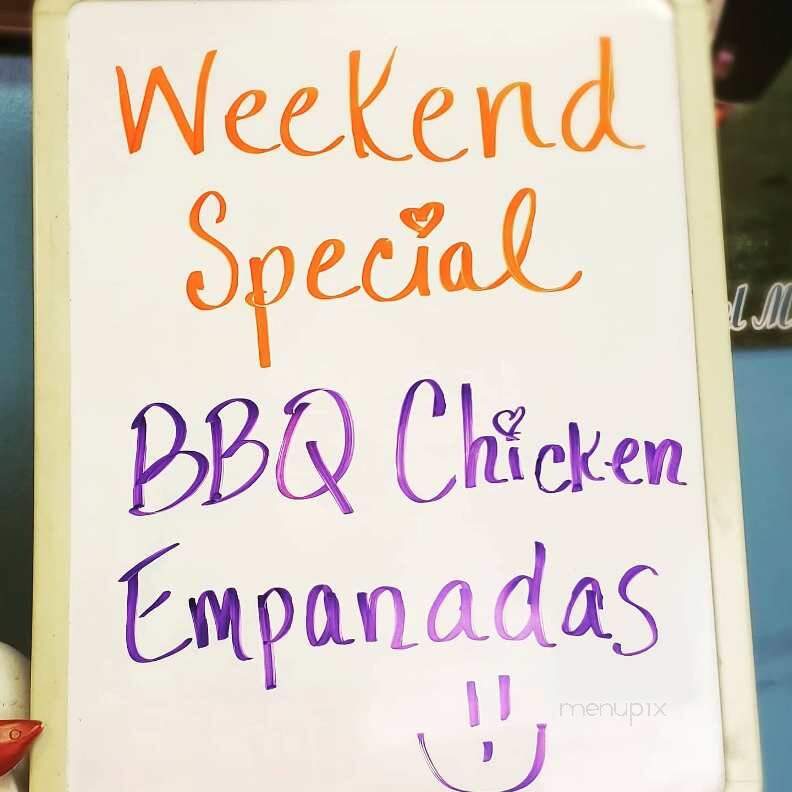 Weekend
Special
BBQ Chicken
Empanadas
menupix